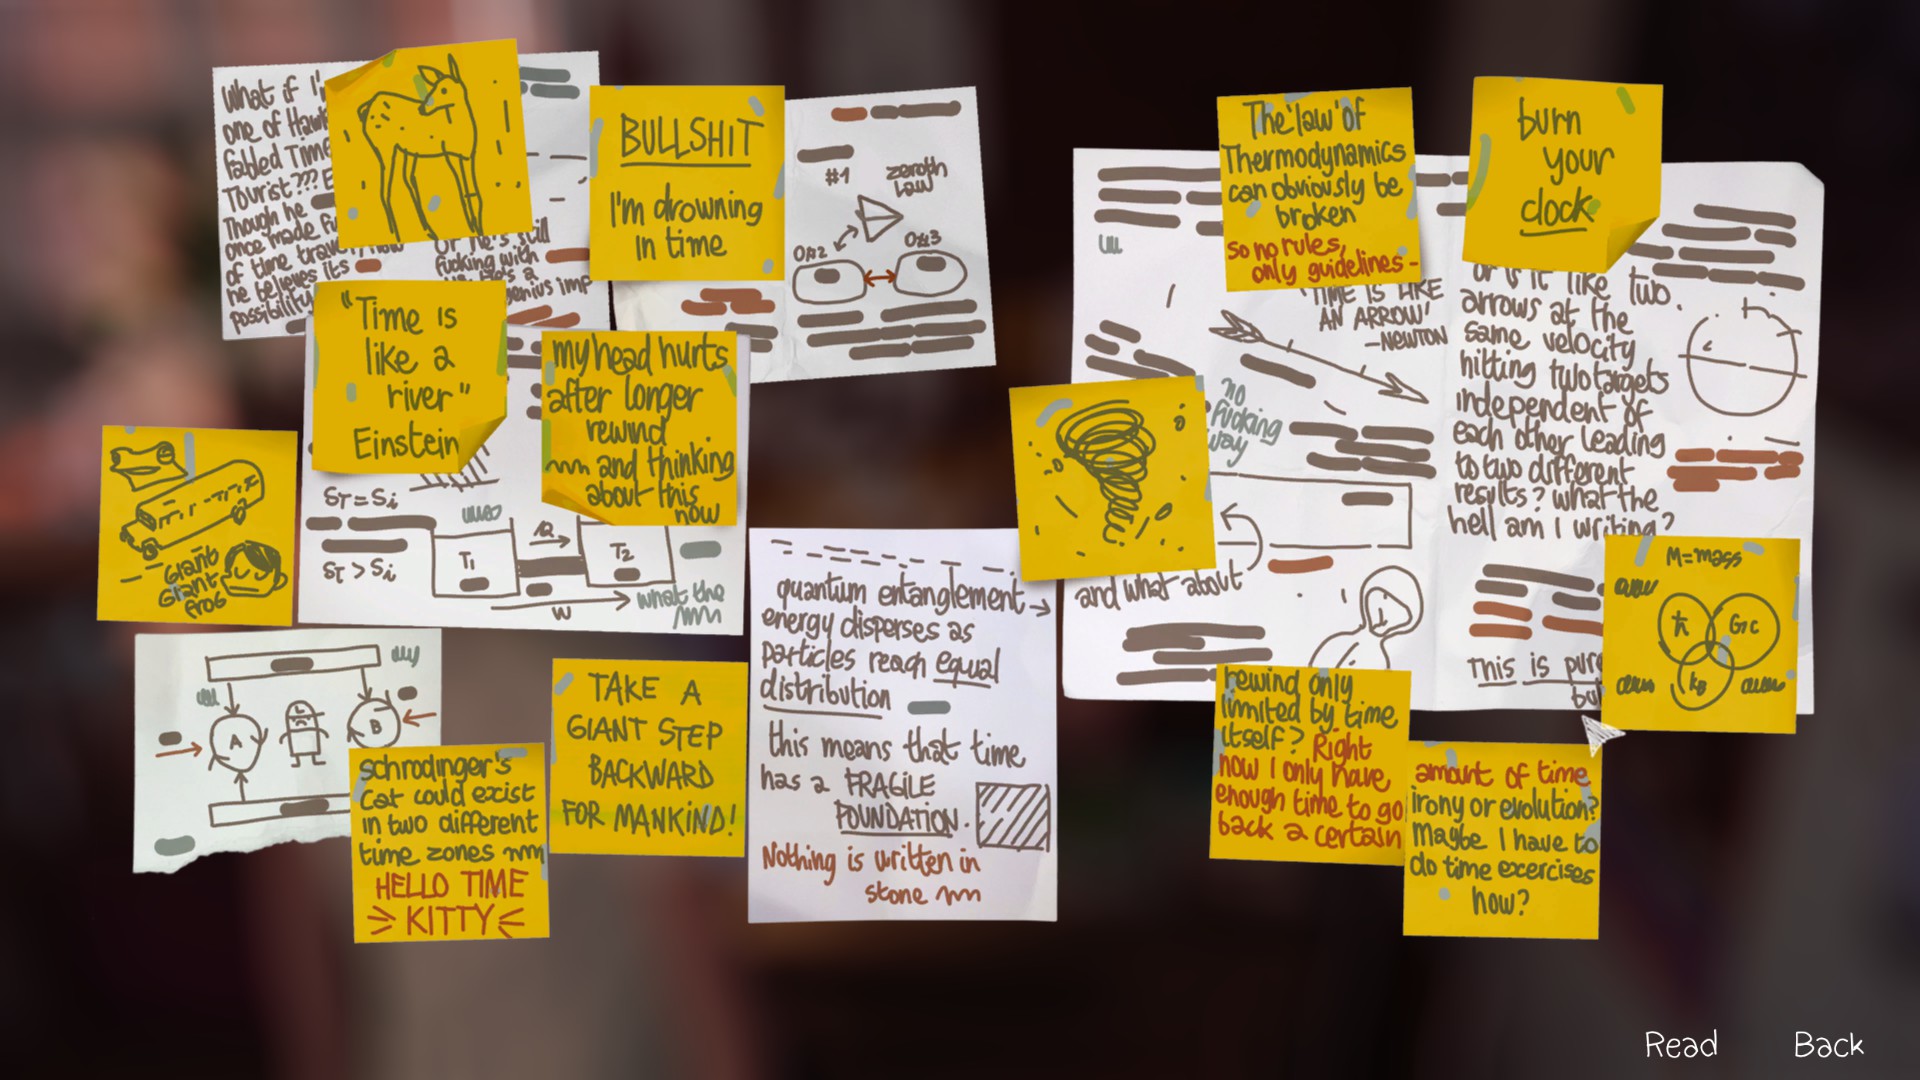 What if I'
one of Hawk
fabled Time
Tourist???
Though he
once made fu
of time trave
he believes its
possibility
or he's still
fucking with
genius imp
BULLSHIT
I'm drowning
in time
#1
zeroth
law
O#2
O#3
"Time is
like a
river"
Einstein
my head hurts
after longer
rewind
and thinking
about this
now
Giant
Giant
frog
ST = Si
ST > Si
T1
ΔQ
T2
W
what the
A
B
schrodinger's
cat could exist
in two different
time zones
HELLO TIME
KITTY
TAKE A
GIANT STEP
BACKWARD
FOR MANKIND!
quantum entanglement →
energy disperses as
particles reach equal
distribution
this means that time
has a FRAGILE
FOUNDATION.
Nothing is written in
stone
The 'law' of
Thermodynamics
can obviously be
broken
so no rules,
only guidelines -
burn
your
clock
'TIME IS LIKE
AN ARROW'
-NEWTON
no
fucking
way
and what about
or is it like two
arrows at the
same velocity
hitting two targets
independent of
each other leading
to two different
results? what the
hell am I writing?
This is pure
bu
M=mass
ħ
G,c
kB
rewind only
limited by time
itself? Right
now I only have
enough time to go
back a certain
amount of time
irony or evolution?
Maybe I have to
do time exercises
now?
Read
Back